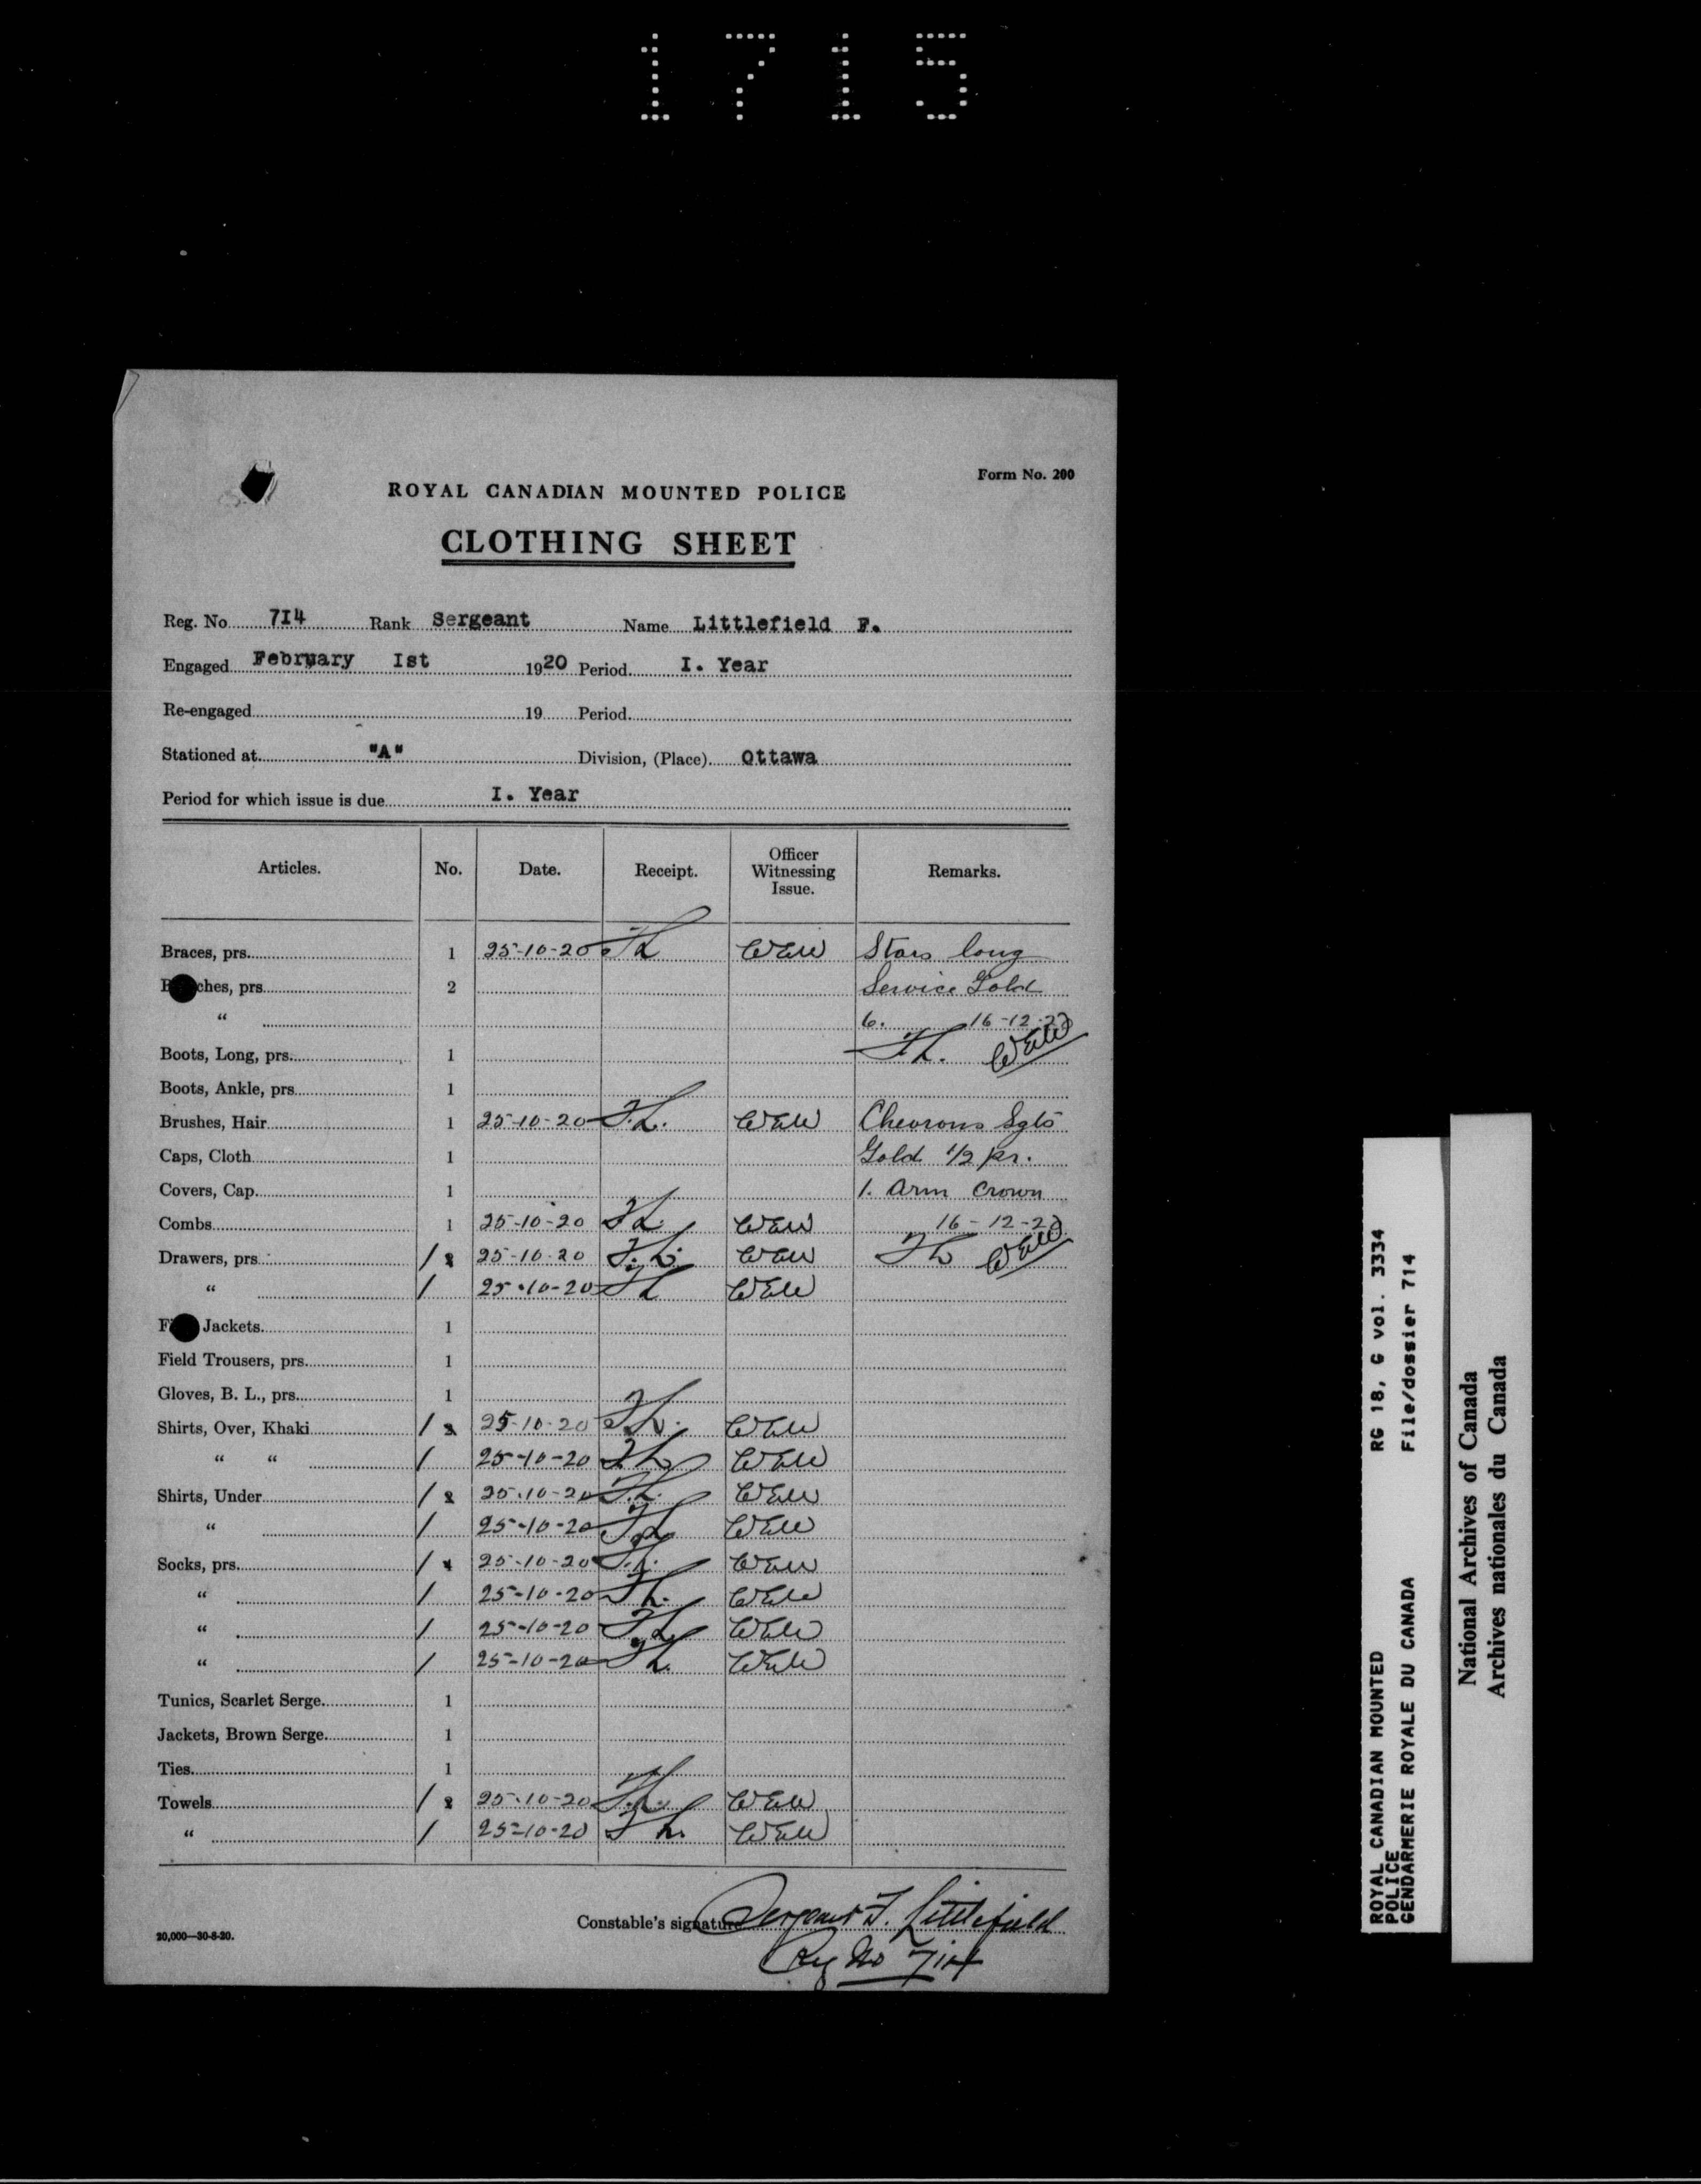 1715
Form No. 200
ROYAL CANADIAN MOUNTED POLICE
CLOTHING SHEET
Reg. No. 7I4 Rank Sergeant Name Littlefield F.
Engaged February Ist 1920 Period I. Year
Re-engaged 19 Period
Stationed at "A" Division, (Place) Ottawa
Period for which issue is due I. Year
Articles. No. Date. Receipt. Officer Witnessing Issue. Remarks.
Braces, prs. 1 25-10-20 FL WEW Stars long
ches, prs. 2 Service Gold
" 6. 16-12-22
Boots, Long, prs. 1 F.L. WEW
Boots, Ankle, prs. 1
Brushes, Hair 1 25-10-20 F.L. WEW Chevrons Sgts
Caps, Cloth 1 Gold 1/2 pr.
Covers, Cap 1 1. Arm Crown
Combs 1 25-10-20 FL. WEW 16-12-22
Drawers, prs. / 2 25-10-20 F.L. WEW FL WEW
" / 25-10-20 FL WEW
Jackets 1
Field Trousers, prs. 1
Gloves, B. L., prs. 1
Shirts, Over, Khaki / 2 25-10-20 FL. WEW
" " / 25-10-20 FL WEW
Shirts, Under / 2 25-10-20 F.L. WEW
" / 25-10-20 FL WEW
Socks, prs. / 4 25-10-20 F.L. WEW
" / 25-10-20 FL. WEW
" / 25-10-20 FL WEW
" / 25-10-20 FL. WEW
Tunics, Scarlet Serge 1
Jackets, Brown Serge 1
Ties 1
Towels / 2 25-10-20 F.L. WEW
" / 25-10-20 FL. WEW
Constable's signature Sergeant F. Littlefield
Reg No 714
20,000—30-8-20.
ROYAL CANADIAN MOUNTED RG 18, G vol. 3334
POLICE
GENDARMERIE ROYALE DU CANADA File/dossier 714
National Archives of Canada
Archives nationales du Canada